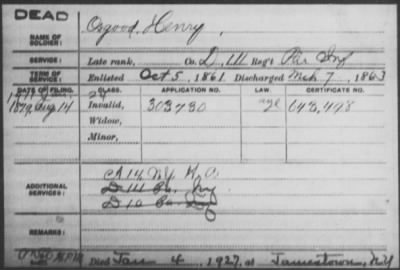 DEAD
NAME OF SOLDIER: Osgood, Henry,
SERVICE: Late rank, Co. D, 111 Reg't Pa Inf
TERM OF SERVICE: Enlisted Oct 5, 1861. Discharged Mch 7, 1863
DATE OF FILING. CLASS. APPLICATION NO. LAW. CERTIFICATE NO.
1879, Aug. 14 Invalid, 303730 648,448
Widow,
Minor,
ADDITIONAL SERVICES: A 14 N.Y. H.A.
D 111 Pa. Inf
REMARKS: Died Jan 4, 1927, at Jamestown, N.Y.